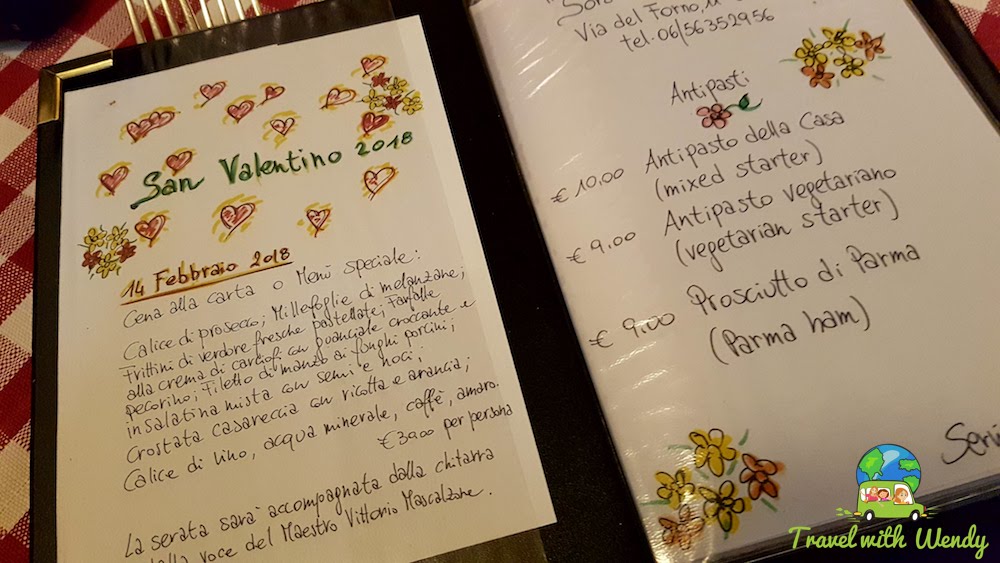 San Valentino 2018
14 Febbraio 2018
Cena alla carta o Menù speciale:
Calice di prosecco; Millefoglie di melanzane;
Frittini di verdure fresche pastellate; Farfalle
alla crema di carciofi con guanciale croccante e
pecorino; Filetto di manzo ai funghi porcini;
insalatina mista con semi e noci;
Crostata casareccia con ricotta e arancia;
Calice di vino, acqua minerale, caffè, amaro.
€ 39,00 per persona
La serata sarà accompagnata dalla chitarra
voce del Maestro Vittorio Mascalzone.
Via del Forno,
tel. 06/56352956
Antipasti
€ 10,00 Antipasto della Casa
(mixed starter)
€ 9,00 Antipasto vegetariano
(vegetarian starter)
€ 9,00 Prosciutto di Parma
(Parma ham)
Travel with Wendy